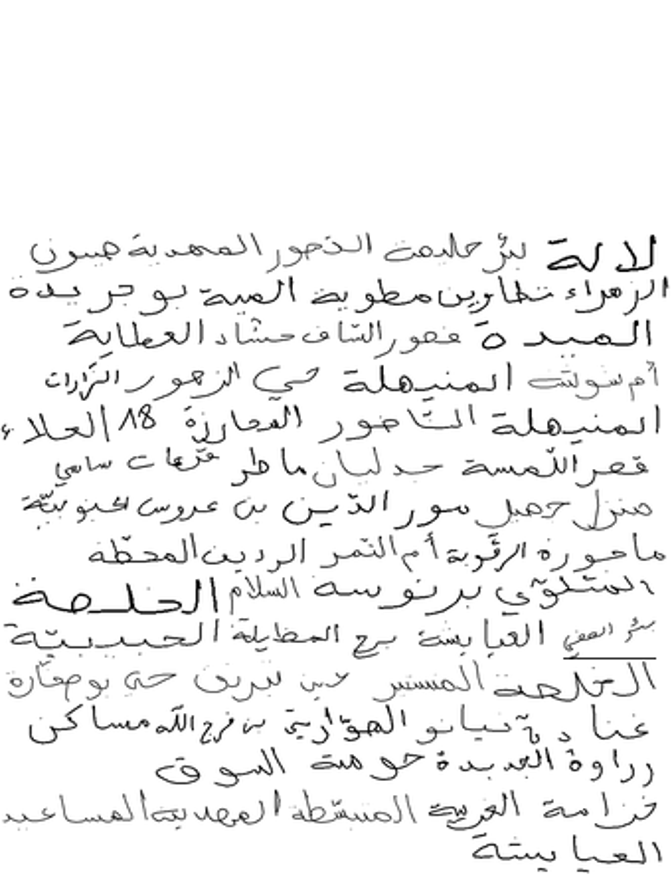 لالة بئر حليمة الذحور المهدية صيون
الزهراء تطاوين مطوية المية بوجريدة
الميدة قصور الساف حشاد العطاية
أم شوشة المنيهلة حي الزهور الكرارات
المنيهلة الناظور القصارزة 18 العلاء
قصر اللمسة جدليان ماطر قرعات سامي
منزل جميل سور الدين بن عروس
ماجورة الرقوبة أم الثمر الرديف المحطة
المتلوي برنوسة السلام الخلجة
بئر الحفي العيايشة برج المظايلة الحبيبية
الخلجة المنستير عين تبرنق حي بوصفارة
غنادة نيانو الهوارية بن فرج الله مساكن
رراوة الجديدة حومة السوق
خزامة الغربية المنبسطة المهدية المساعيد
العيايشة